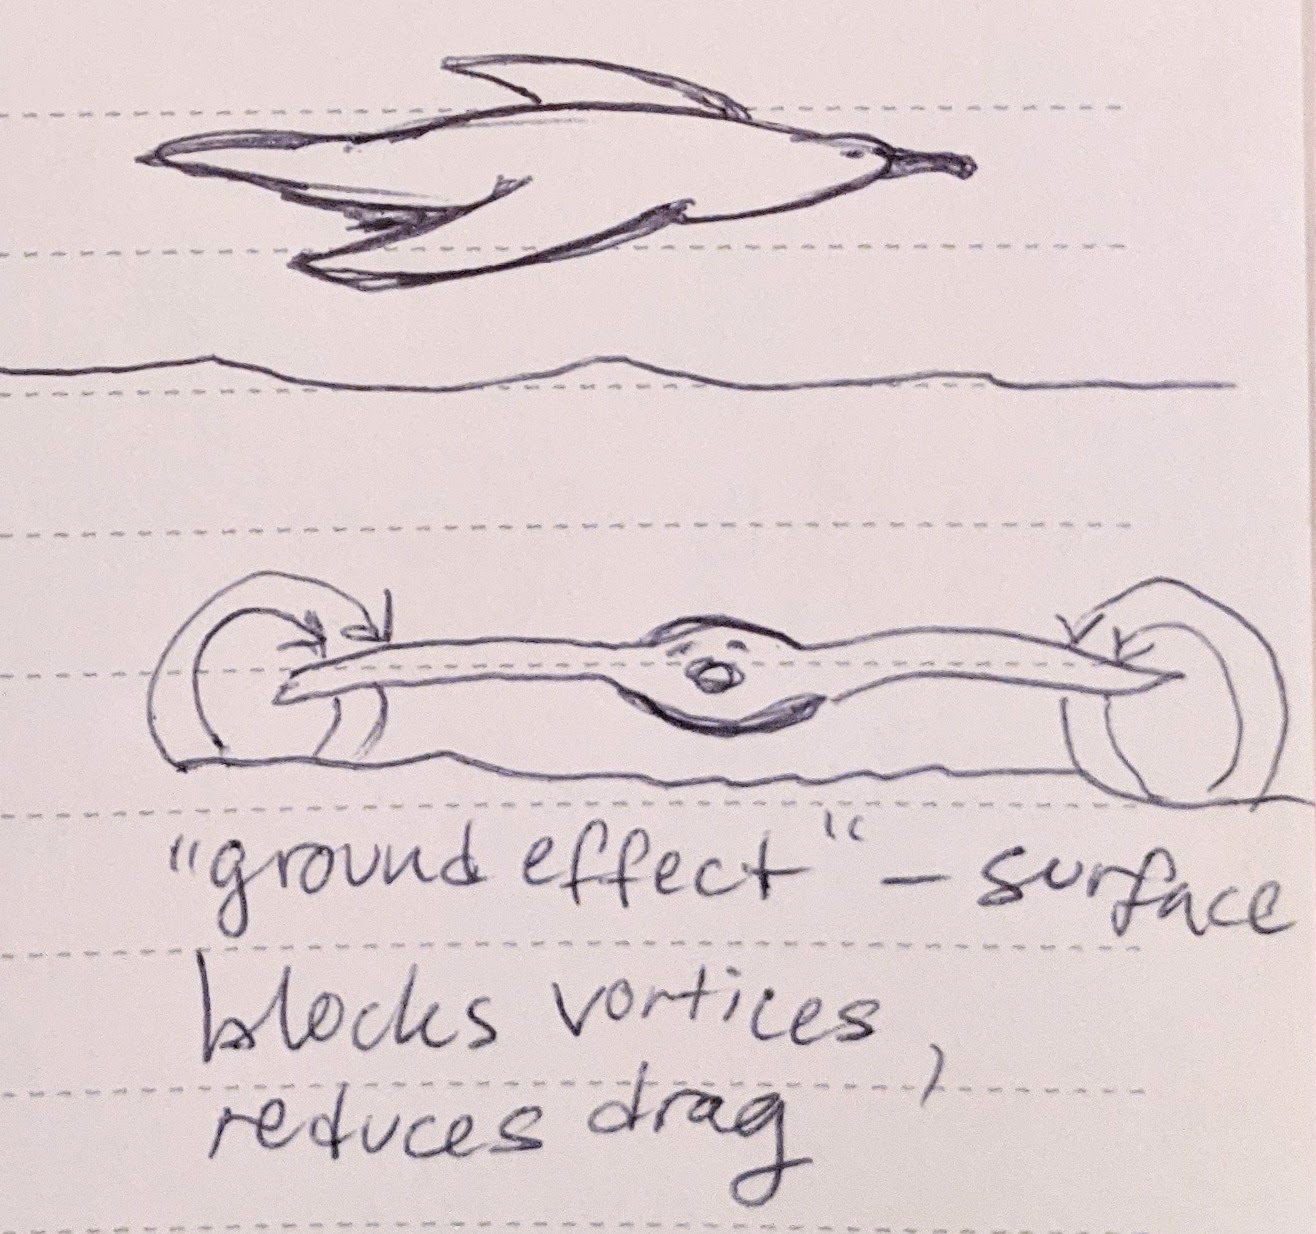 "ground effect" – surface
blocks vortices,
reduces drag